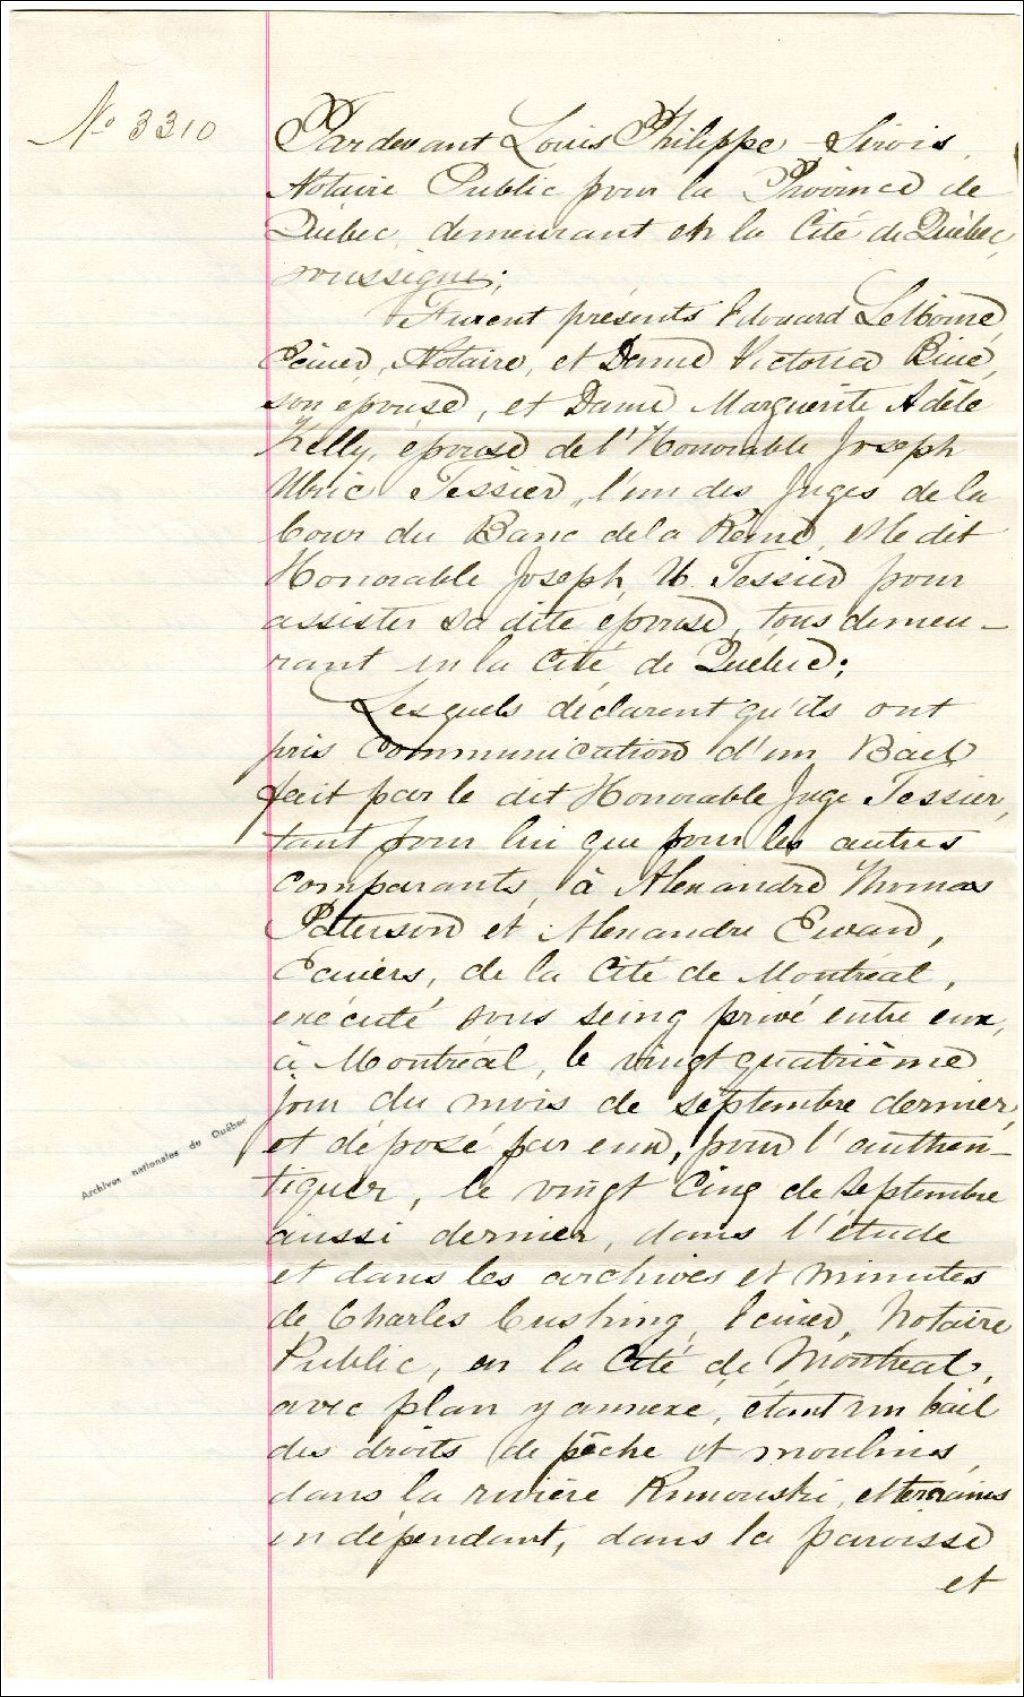 No 3310
Pardevant Louis Philippe Sirois,
Notaire Public pour la Province de
Québec, demeurant en la Cité de Québec,
soussigné;
Furent présents Edouard LeMoine,
Ecuier, Notaire, et Dame Victoria Biné,
son épouse, et Dame Marguerite Adèle
Kelly, épouse de l'Honorable Joseph
Ulric Tessier, l'un des Juges de la
Cour du Banc de la Reine, et le dit
Honorable Joseph U. Tessier pour
assister sa dite épouse, tous demeu-
rant en la Cité de Québec;
Lesquels déclarent qu'ils ont
pris communication d'un Bail
fait par le dit Honorable Juge Tessier,
tant pour lui que pour les autres
comparants, à Alexandre Thomas
Paterson et Alexandre Ewan,
Ecuiers, de la Cité de Montréal,
exécuté sous seing privé entre eux,
à Montréal, le vingt quatrième
jour du mois de septembre dernier,
et déposé par eux, pour l'authen-
tiquer, le vingt cinq de Septembre
aussi dernier, dans l'étude
et dans les archives et minutes
de Charles Cushing, Ecuier, Notaire
Public, en la Cité de Montréal,
avec plan y annexé, étant un bail
des droits de pêche et moulins,
dans la rivière Rimouski, et terrains
en dépendant, dans la paroisse
et
Archives nationales du Québec